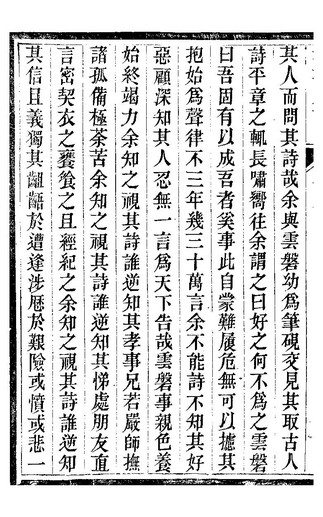 其人而問其詩哉余與雲磐幼為筆硯交見其取古人
詩平章之輒長嘯嚮往余謂之曰好之何不為之雲磐
曰吾固有以成吾者奚事此自蒙難履危無可以攄其
抱始為聲律不三年幾三十萬言余不能詩不知其好
惡顧深知其人忍無一言為天下告哉雲磐事親色養
始終竭力余知之視其詩誰逆知其孝事兄若嚴師撫
諸孤備極荼苦余知之視其詩誰逆知其悌處朋友直
言密契衣之饔飱之且經紀之余知之視其詩誰逆知
其信且義獨其齟齬於遭逢涉歷於艱險或憤或悲一